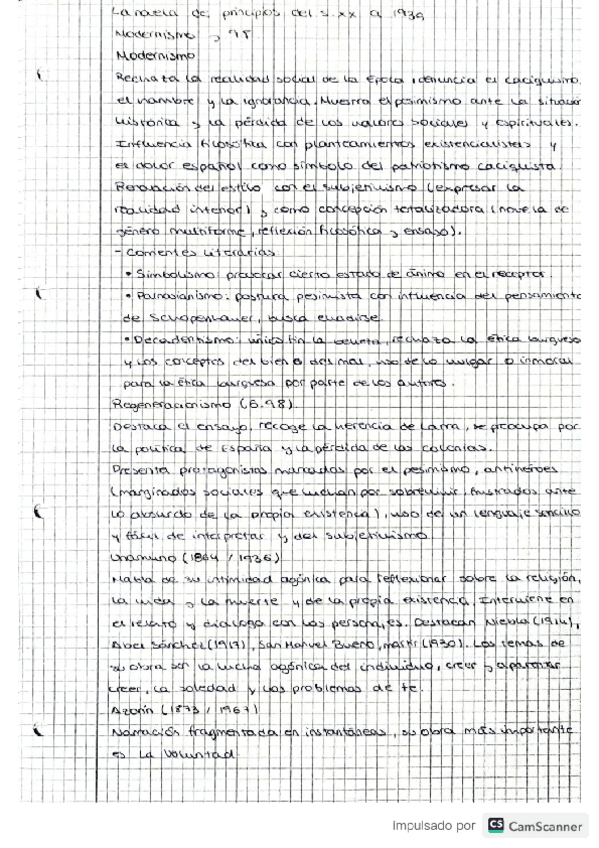 La novela de principios del s. xx a 1939
Modernismo y 98
Modernismo
Rechaza la realidad social de la época, denuncia el caciquismo,
el hambre y la ignorancia. Muestra el pesimismo ante la situación
histórica y la pérdida de los valores sociales y espirituales.
Influencia filosófica con planteamientos existencialistas y
el dolor español como símbolo del patriotismo caciquista.
Renovación del estilo con el subjetivismo (expresar la
realidad interior) y como concepción totalizadora (novela de
género multiforme, reflexión filosófica y ensayo).
- Corrientes literarias
• Simbolismo: provocar cierto estado de ánimo en el receptor.
• Parnasianismo: postura pesimista con influencia del pensamiento
de Schopenhauer, busca evadirse.
• Decadentismo: único fin la belleza, rechaza la ética burguesa
y los conceptos del bien o del mal, uso de lo vulgar o inmoral
para la ética burguesa por parte de los autores.
Regeneracionismo (G.98).
Destaca el ensayo, recoge la herencia de Larra, se preocupa por
la política de España y la pérdida de las colonias.
Presenta protagonistas marcados por el pesimismo, antihéroes
(marginados sociales que luchan por sobrevivir, frustrados ante
lo absurdo de la propia existencia), uso de un lenguaje sencillo
y fácil de interpretar y del subjetivismo.
Unamuno (1864 / 1936)
Habla de su intimidad agónica para reflexionar sobre la religión,
la vida y la muerte y de la propia existencia. Interviene en
el relato y dialoga con los personajes. Destacan Niebla (1914),
Abel Sánchez (1917), San Manuel Bueno, mártir (1930). Los temas de
su obra son la lucha agónica del individuo, creer y aparentar
creer, la soledad y los problemas de fe.
Azorín (1873 / 1967)
Narración fragmentada en instantáneas, su obra más importante
es La Voluntad
Impulsado por CS CamScanner